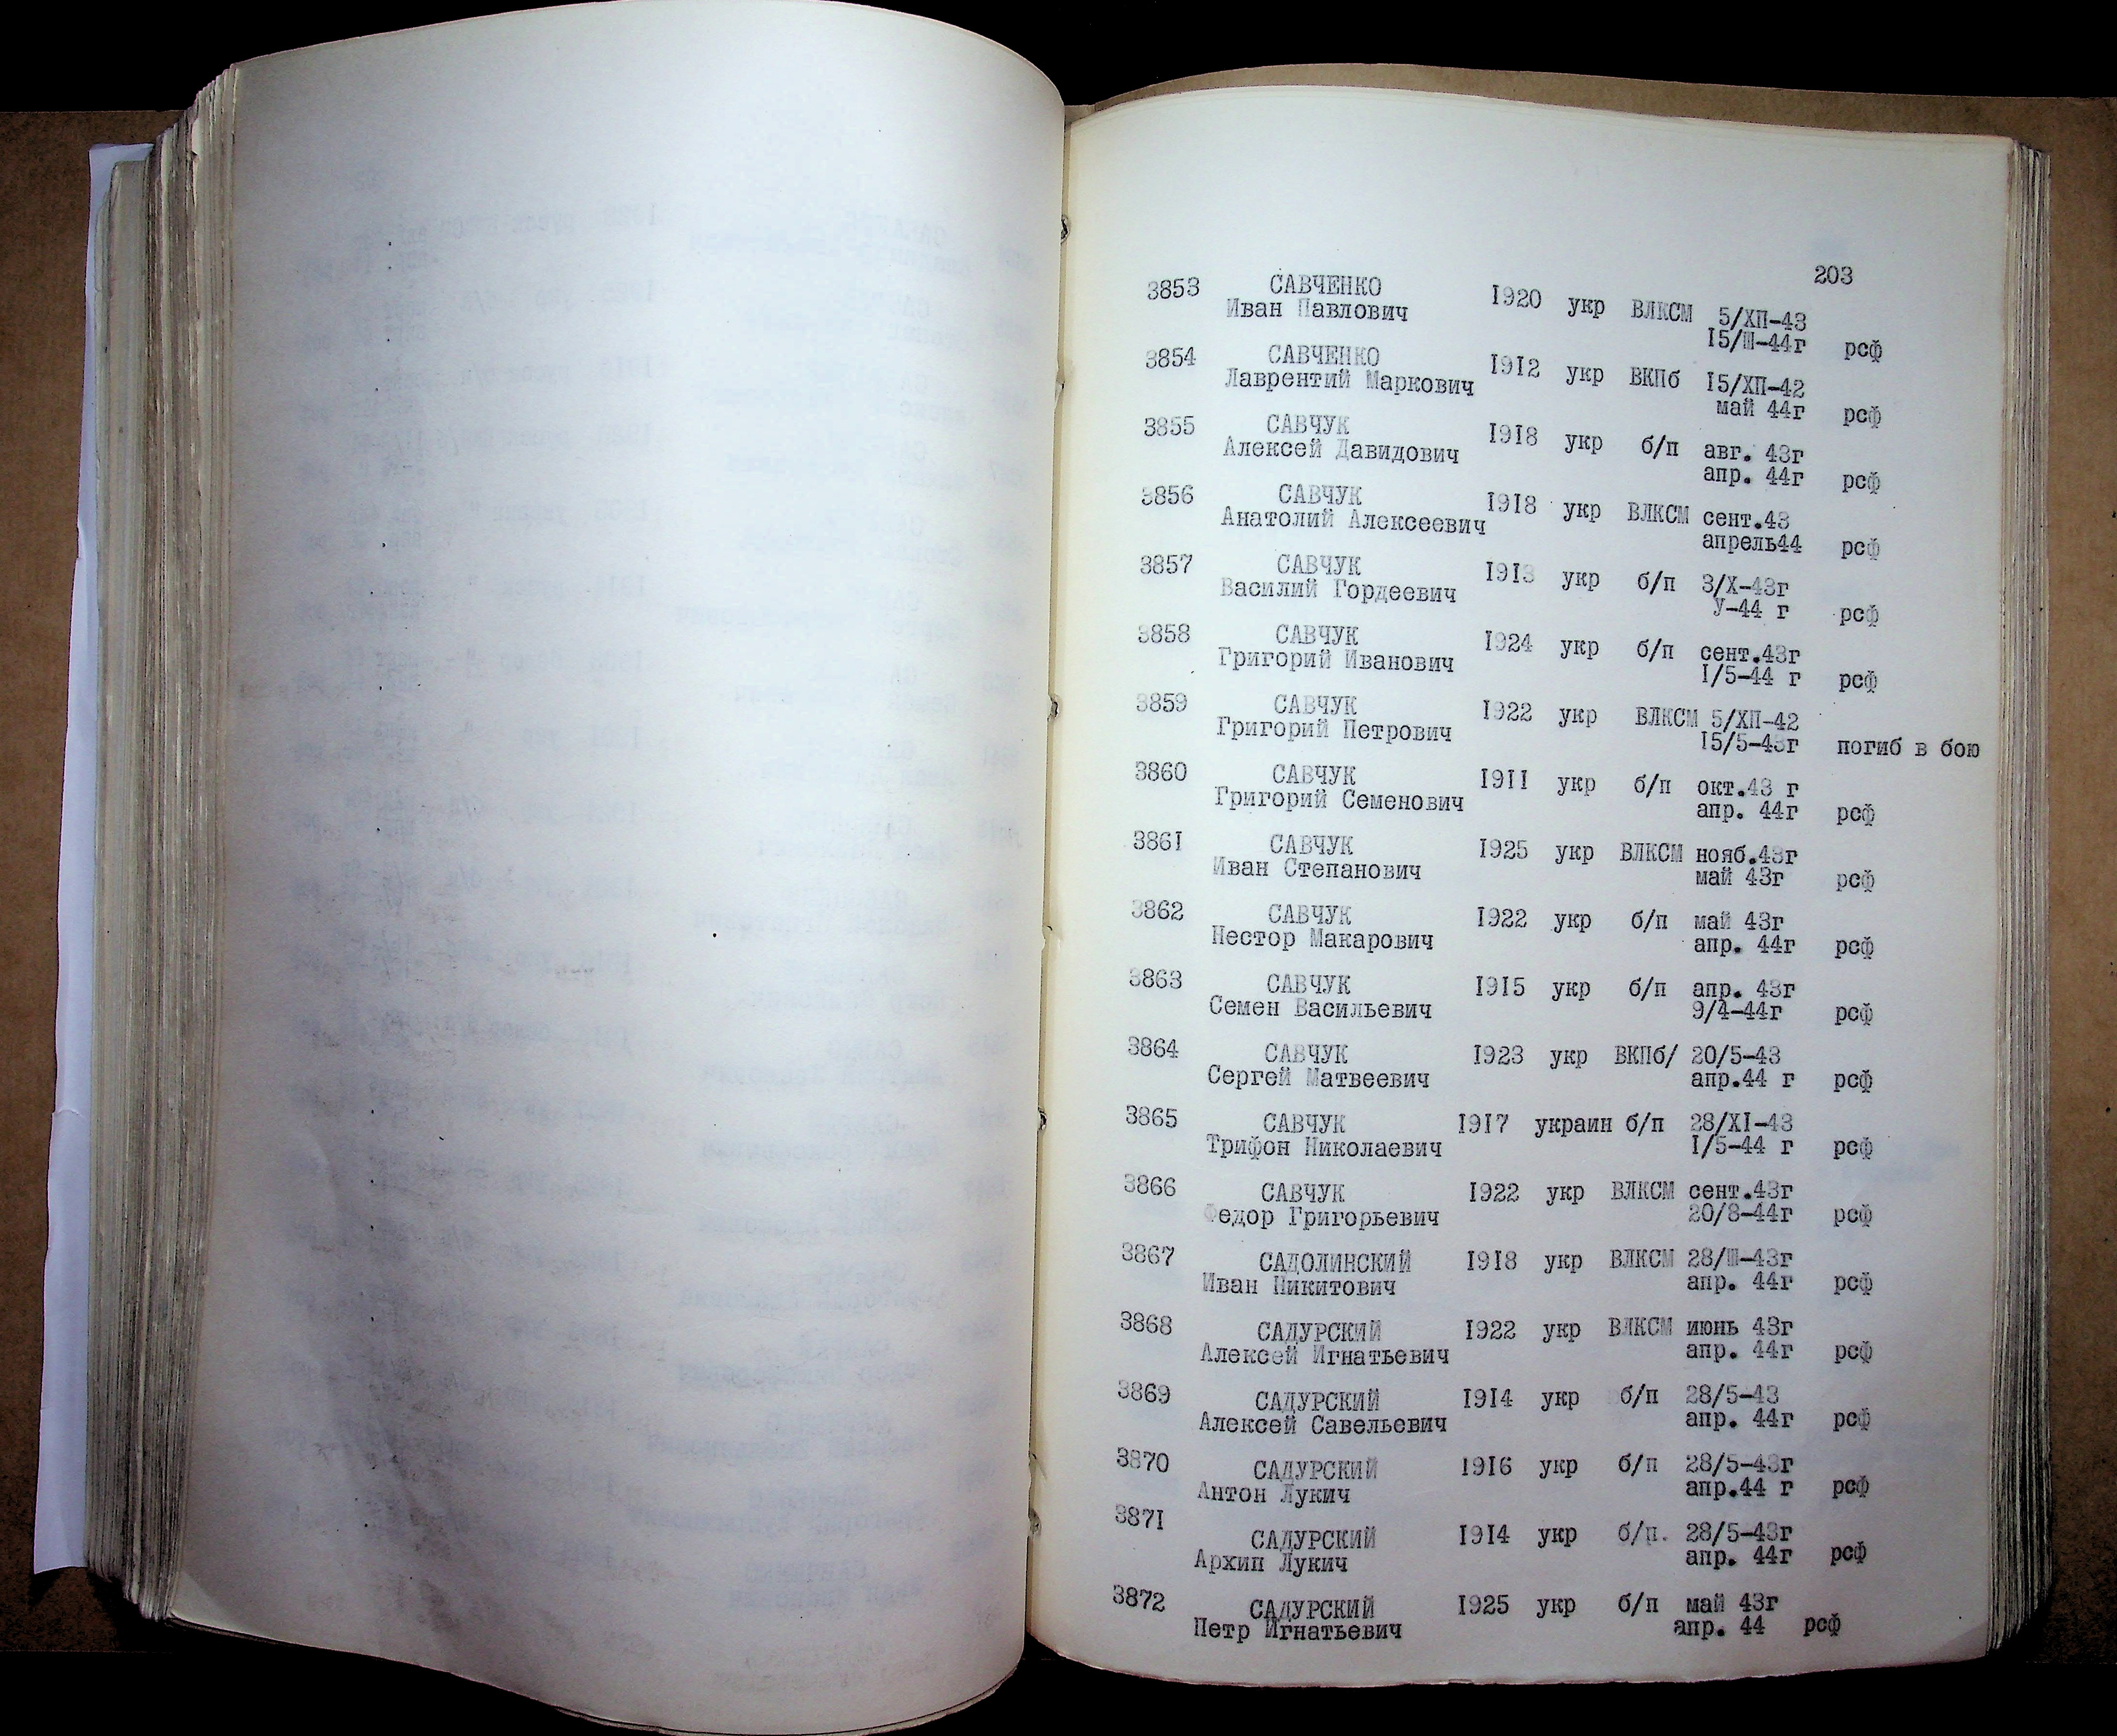 203
3853 САВЧЕНКО 1920 укр ВЛКСМ 5/ХП-43
Иван Павлович 15/Ш-44г рсф
3854 САВЧЕНКО 1912 укр ВКПб 15/ХП-42
Лаврентий Маркович май 44г рсф
3855 САВЧУК 1918 укр б/п авг. 43г
Алексей Давидович апр. 44г рсф
3856 САВЧУК 1918 укр ВЛКСМ сент.43
Анатолий Алексеевич апрель44 рсф
3857 САВЧУК 1913 укр б/п 3/Х-43г
Василий Гордеевич У-44 г рсф
3858 САВЧУК 1924 укр б/п сент.43г
Григорий Иванович 1/5-44 г рсф
3859 САВЧУК 1922 укр ВЛКСМ 5/ХП-42
Григорий Петрович 15/5-43г погиб в бою
3860 САВЧУК 1911 укр б/п окт.43 г
Григорий Семенович апр. 44г рсф
3861 САВЧУК 1925 укр ВЛКСМ нояб.43г
Иван Степанович май 43г рсф
3862 САВЧУК 1922 укр б/п май 43г
Нестор Макарович апр. 44г рсф
3863 САВЧУК 1915 укр б/п апр. 43г
Семен Васильевич 9/4-44г рсф
3864 САВЧУК 1923 укр ВКПб/ 20/5-43
Сергей Матвеевич апр.44 г рсф
3865 САВЧУК 1917 украин б/п 28/XI-43
Трифон Николаевич 1/5-44 г рсф
3866 САВЧУК 1922 укр ВЛКСМ сент.43г
Федор Григорьевич 20/8-44г рсф
3867 САДОЛИНСКИЙ 1918 укр ВЛКСМ 28/Ш-43г
Иван Никитович апр. 44г рсф
3868 САДУРСКИЙ 1922 укр ВЛКСМ июнь 43г
Алексей Игнатьевич апр. 44г рсф
3869 САДУРСКИЙ 1914 укр б/п 28/5-43
Алексей Савельевич апр. 44г рсф
3870 САДУРСКИЙ 1916 укр б/п 28/5-43г
Антон Лукич апр.44 г рсф
3871 САДУРСКИЙ 1914 укр б/п. 28/5-43г
Архип Лукич апр. 44г рсф
3872 САДУРСКИЙ 1925 укр б/п май 43г
Петр Игнатьевич апр. 44 рсф